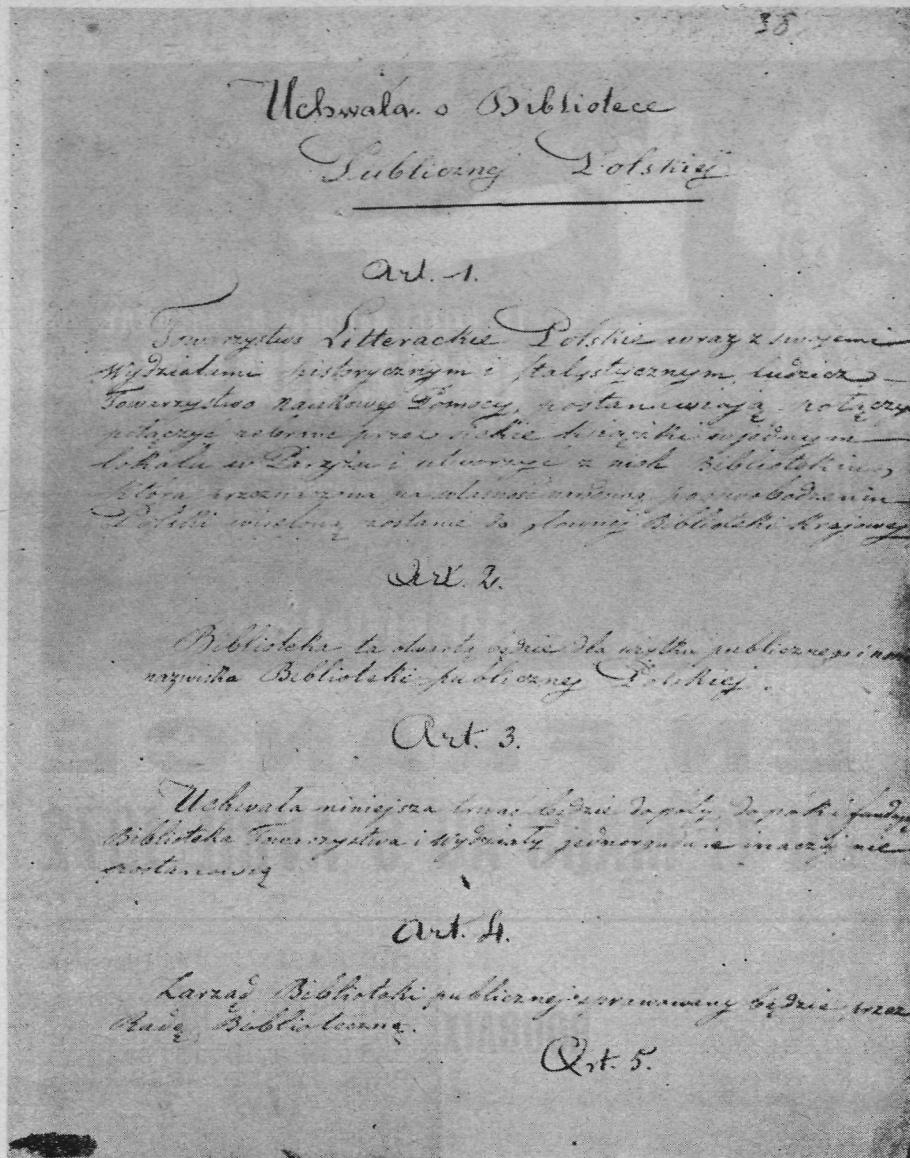 38
Uchwała o Bibliotece
Publicznej Polskiej
Art. 1.
Towarzystwo Litterackie Polskie wraz z swojemi
Wydziałami historycznym i statystycznym, tudzież
Towarzystwo Naukowey Pomocy, postanawiają
połączyć zebrane przez siebie książki w jednym
lokalu w Paryżu i utworzyć z nich Bibliotekę
która przeznaczona na własność narodową, po oswobodzeniu
Polski wcieloną zostanie do głównej Biblioteki Krajowej
Art. 2.
Biblioteka ta otwartą będzie dla użytku publicznego i
nazwisko Biblioteki publicznej Polskiej.
Art. 3.
Uchwała niniejsza trwać będzie dopóty, dopóki
Biblioteka Towarzystwa i Wydziały jednozgodnie inaczej nie
postanowią
Art. 4.
Zarząd Biblioteki publicznej sprawowany będzie przez
Radę Biblioteczną.
Art. 5.